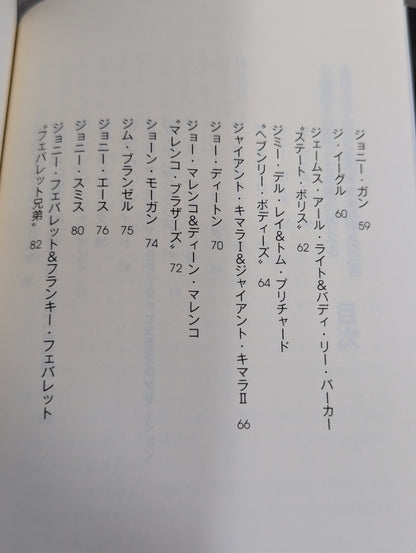 ジョニー・ガン 59
ジ・イーグル 60
ジェームス・アール・ライト&バディ・リー・バーカー
“ステート・ポリス” 62
ジミー・デル・レイ&トム・プリチャード
“ヘブンリー・ボディーズ” 64
ジャイアント・キマラⅠ&ジャイアント・キマラⅡ 66
ジョー・ディートン 70
ジョー・マレンコ&ディーン・マレンコ
“マレンコ・ブラザーズ” 72
ショーン・モーガン 74
ジム・ブランゼル 75
ジョニー・エース 76
ジョニー・スミス 80
ジョニー・フェバレット&フランキー・フェバレット
“フェバレット兄弟” 82